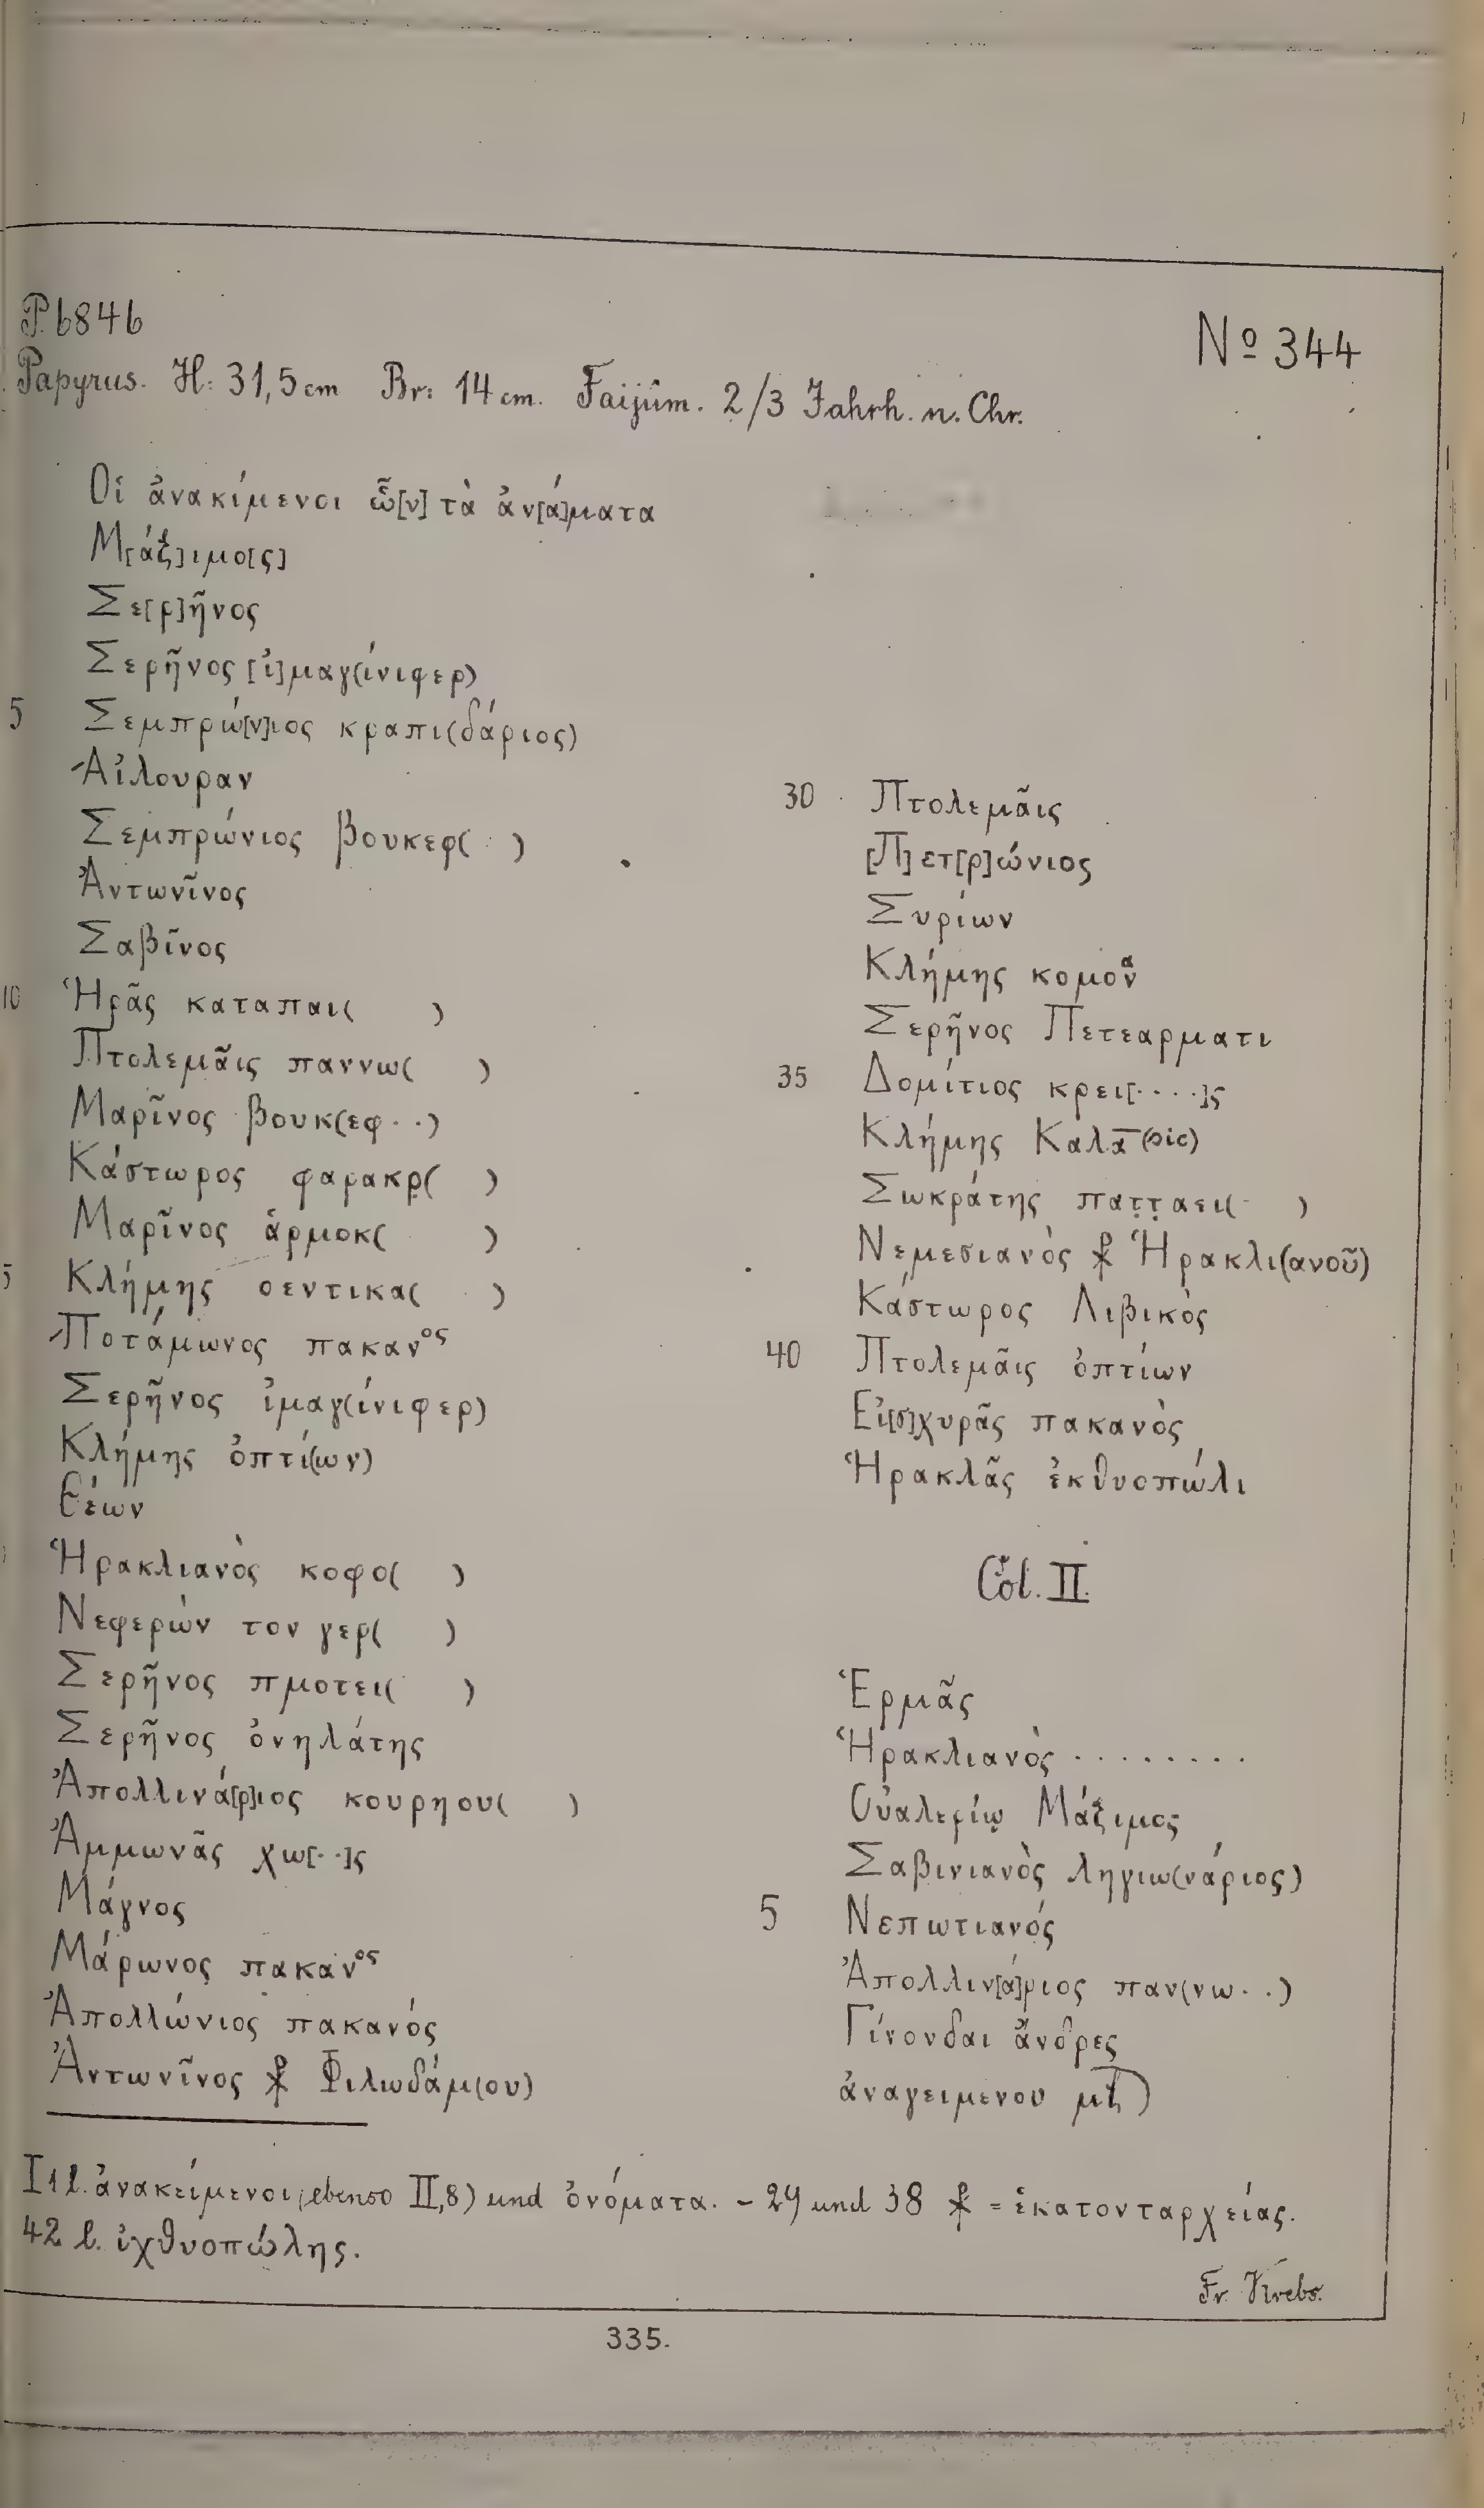 P. 6846
No 344
Papyrus. H: 31,5 cm Br: 14 cm. Faijûm. 2/3 Jahrh. n. Chr.
Οἱ ἀνακίμενοι ὧ[ν] τὰ ἀν[ά]ματα
Μ[άξ]ιμο[ς]
Σε[ρ]ῆνος
Σερῆνος [ἰ]μαγ(ίνιφερ)
5 Σεμπρώ[ν]ιος κραπι(δάριος)
Αἰλουραν
Σεμπρώνιος βουκεφ( )
Ἀντωνῖνος
Σαβῖνος
10 Ἡρᾶς καταπαι( )
Πτολεμᾶις παννω( )
Μαρῖνος βουκ(εφ··)
Κάστωρος φαρακρ̣( )
Μαρῖνος ἁρμοκ( )
5 Κλήμης σεντικα( )
Ποτάμωνος πακανος
Σερῆνος ἰμαγ(ίνιφερ)
Κλήμης ὀπτί(ων)
Θέων
Ἡρακλιανὸς κοφο( )
Νεφερὼν τον γερ( )
Σερῆνος πμοτει( )
Σερῆνος ὀνηλάτης
Ἀπολλινά[ρ]ιος κουρηου( )
Ἀμμωνᾶς χω[··]ς
Μάγνος
Μάρωνος πακανος
Ἀπολλώνιος πακανός
Ἀντωνῖνος ⳨ Φιλωδάμ(ου)
30 Πτολεμᾶις
[Π]ετ[ρ]ώνιος
Συρίων
Κλήμης κομοαν
Σερῆνος Πετεαρματι
35 Δομίτιος κρει[····]ς
Κλήμης Καλᾱ (sic)
Σωκράτης πατ̣τ̣αει( )
Νεμεσιανὸς ⳨ Ἡρακλι(ανοῦ)
Κάστωρος Λιβικὸς
40 Πτολεμᾶις ὀπτίων
Εἰ[σ]χυρᾶς πακανὸς
Ἡρακλᾶς ἐκθυοπώλι
Col. II.
Ἑρμᾶς
Ἡρακλιανὸς ········
Οὐαλερίῳ Μάξιμος
Σαβινιανὸς ληγιω(νάριος)
5 Νεπωτιανός
Ἀπολλιν[ά]ριος παν(νω··)
Γίνονδαι ἄνδρες
ἀναγειμενου μζ)
I 1 l. ἀνακείμενοι (ebenso II,8) und ὀνόματα. – 29 und 38 ⳨ = ἑκατονταρχείας.
42 l. ἰχθυοπώλης.
Fr. Krebs.
335.